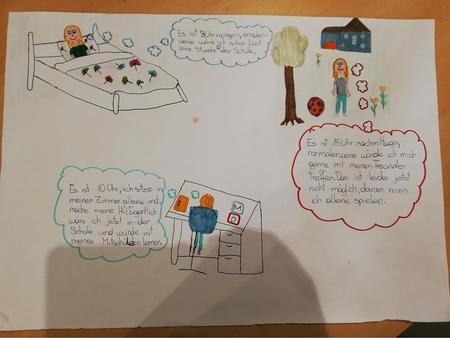 Es ist 8 Uhr morgens, normaler-
weise wäre ich schon fast
eine Stunde in der Schule.
Es ist 15 Uhr nachmittags,
normalerweise würde ich mich
gerne mit meinen Freunden
treffen. Das ist leider jetzt
nicht möglich, darum muss
ich alleine spielen.
Es ist 10 Uhr, ich sitze in
meinen Zimmer alleine und
mache meine HÜ. Eigentlich
wäre ich jetzt in der
Schule und würde mit
meinen Mitschülern lernen.
M
D